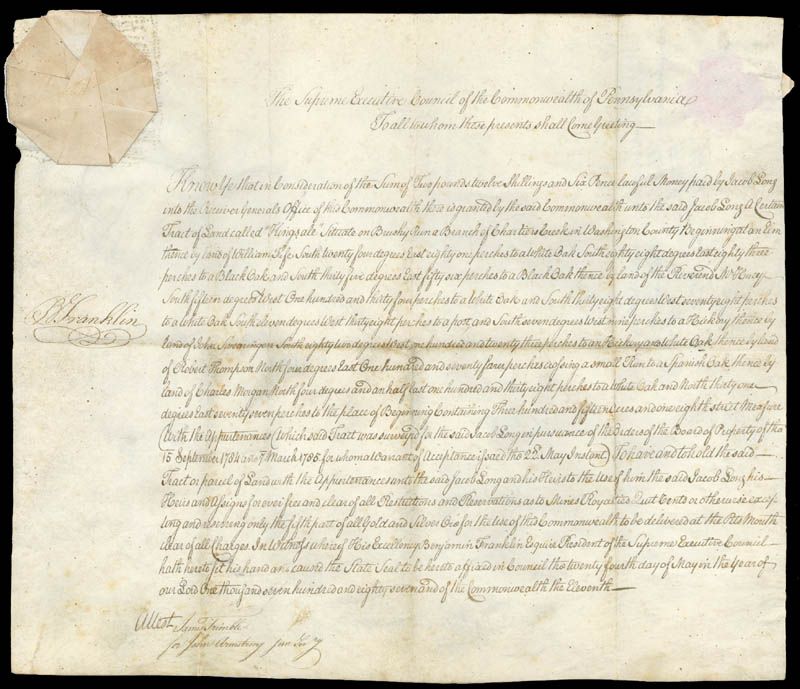 The Supreme Executive Council of the Commonwealth of Pennsylvania
To all to whom these presents shall Come Greeting
Know Ye that in Consideration of the Sum of Two pounds twelve Shillings and Six Pence lawful Money paid by Jacob Long
into the Receiver Generals Office of this Commonwealth there is granted by the said Commonwealth unto the said Jacob Long A Certain
Tract of Land called Kingsale Situate on Brushy Run a Branch of Chartiers Creek in Washington County Beginning at an Elm
thence by land of William Fife South twenty four degrees East eighty one perches to a White Oak South eighty eight degrees East eighty three
perches to a Black Oak and South thirty five degrees East fifty six perches to a Black Oak thence by land of the Reverend
South fifteen degrees West One hundred and thirty four perches to a White Oak and South thirty eight degrees West seventy eight perches
to a White Oak South eleven degrees West thirty eight perches to a post and South seven degrees West nine perches to a Hickory thence by
land of John Swearingen South eighty two degrees West one hundred and twenty three perches to an Hickory and White Oak thence by land
of Robert Thompson North four degrees East One hundred and seventy four perches crossing a small Run to a Spanish Oak thence by
land of Charles Morgan North four degrees and an half East one hundred and thirty eight perches to a White Oak and North thirty one
degrees East seventy seven perches to the place of Beginning Containing Three hundred and fifteen acres and one eighth strict Measure
With the Appurtenances (Which said Tract was surveyed for the said Jacob Long in pursuance of the orders of the Board of Property of the
15 September 1784 and 7 March 1785 for whom a Warrant of Acceptance issued the 22d May Instant) To have and to hold the said
Tract or parcel of Land with the Appurtenances unto the said Jacob Long and his Heirs to the Use of him the said Jacob Long his
Heirs and Assigns forever free and clear of all Restrictions and Reservations as to Mines Royalties Quit Rents or otherwise excep
ting and reserving only the fifth part of all Gold and Silver Ore for the Use of this Commonwealth to be delivered at the Pits Mouth
clear of all Charges. In Witness whereof His Excellency Benjamin Franklin Esquire President of the Supreme Executive Council
hath hereto set his hand and caused the State Seal to be hereto affixed in Council the twenty fourth day of May in the Year of
our Lord One thousand seven hundred and eighty seven and of the Commonwealth the Eleventh
B. Franklin
Attest James Trimble
for John Armstrong Jun Secy